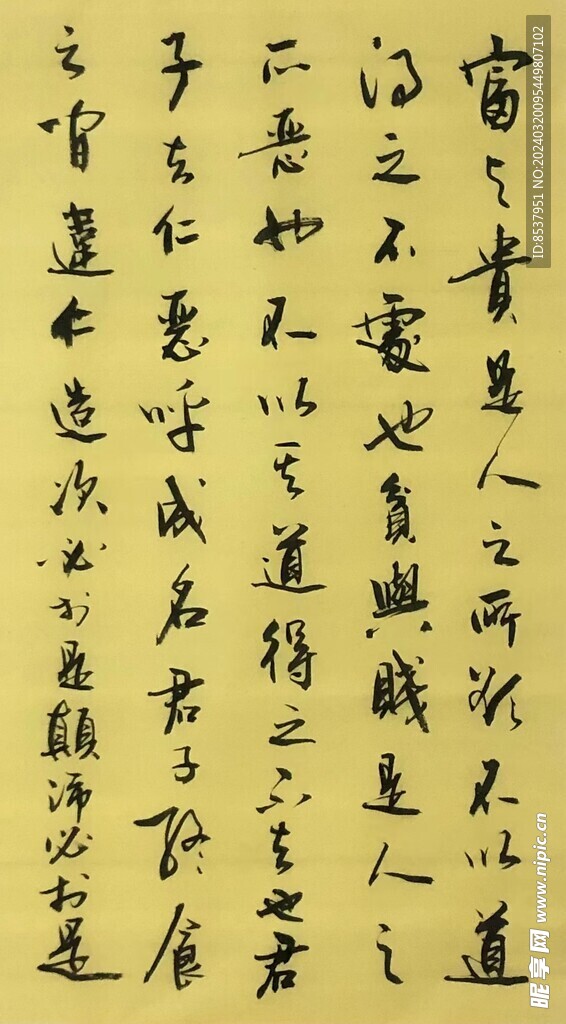 富与貴是人之所欲不以道
得之不處也貧與賤是人之
所惡也不以其道得之不去也君
子去仁惡呼成名君子終食
之間違仁造次必於是顛沛必於是
ID:8537951 NO:20240320095449807102
昵享网 www.nipic.cn